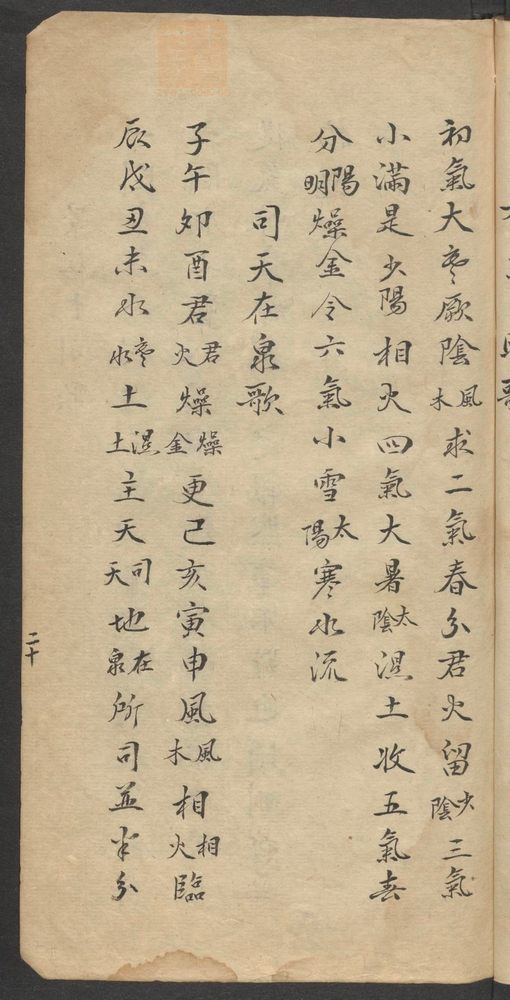 初氣大寒厥陰風木求二氣春分君火留少陰三氣
小滿是少陽相火四氣大暑太陰濕土收五氣春
分陽明燥金令六氣小雪太陽寒水流
司天在泉歌
子午卯酉君君火燥燥金更己亥寅申風風木相相火臨
辰戌丑未水寒水土濕土主天司天地在泉所司並半分
二十